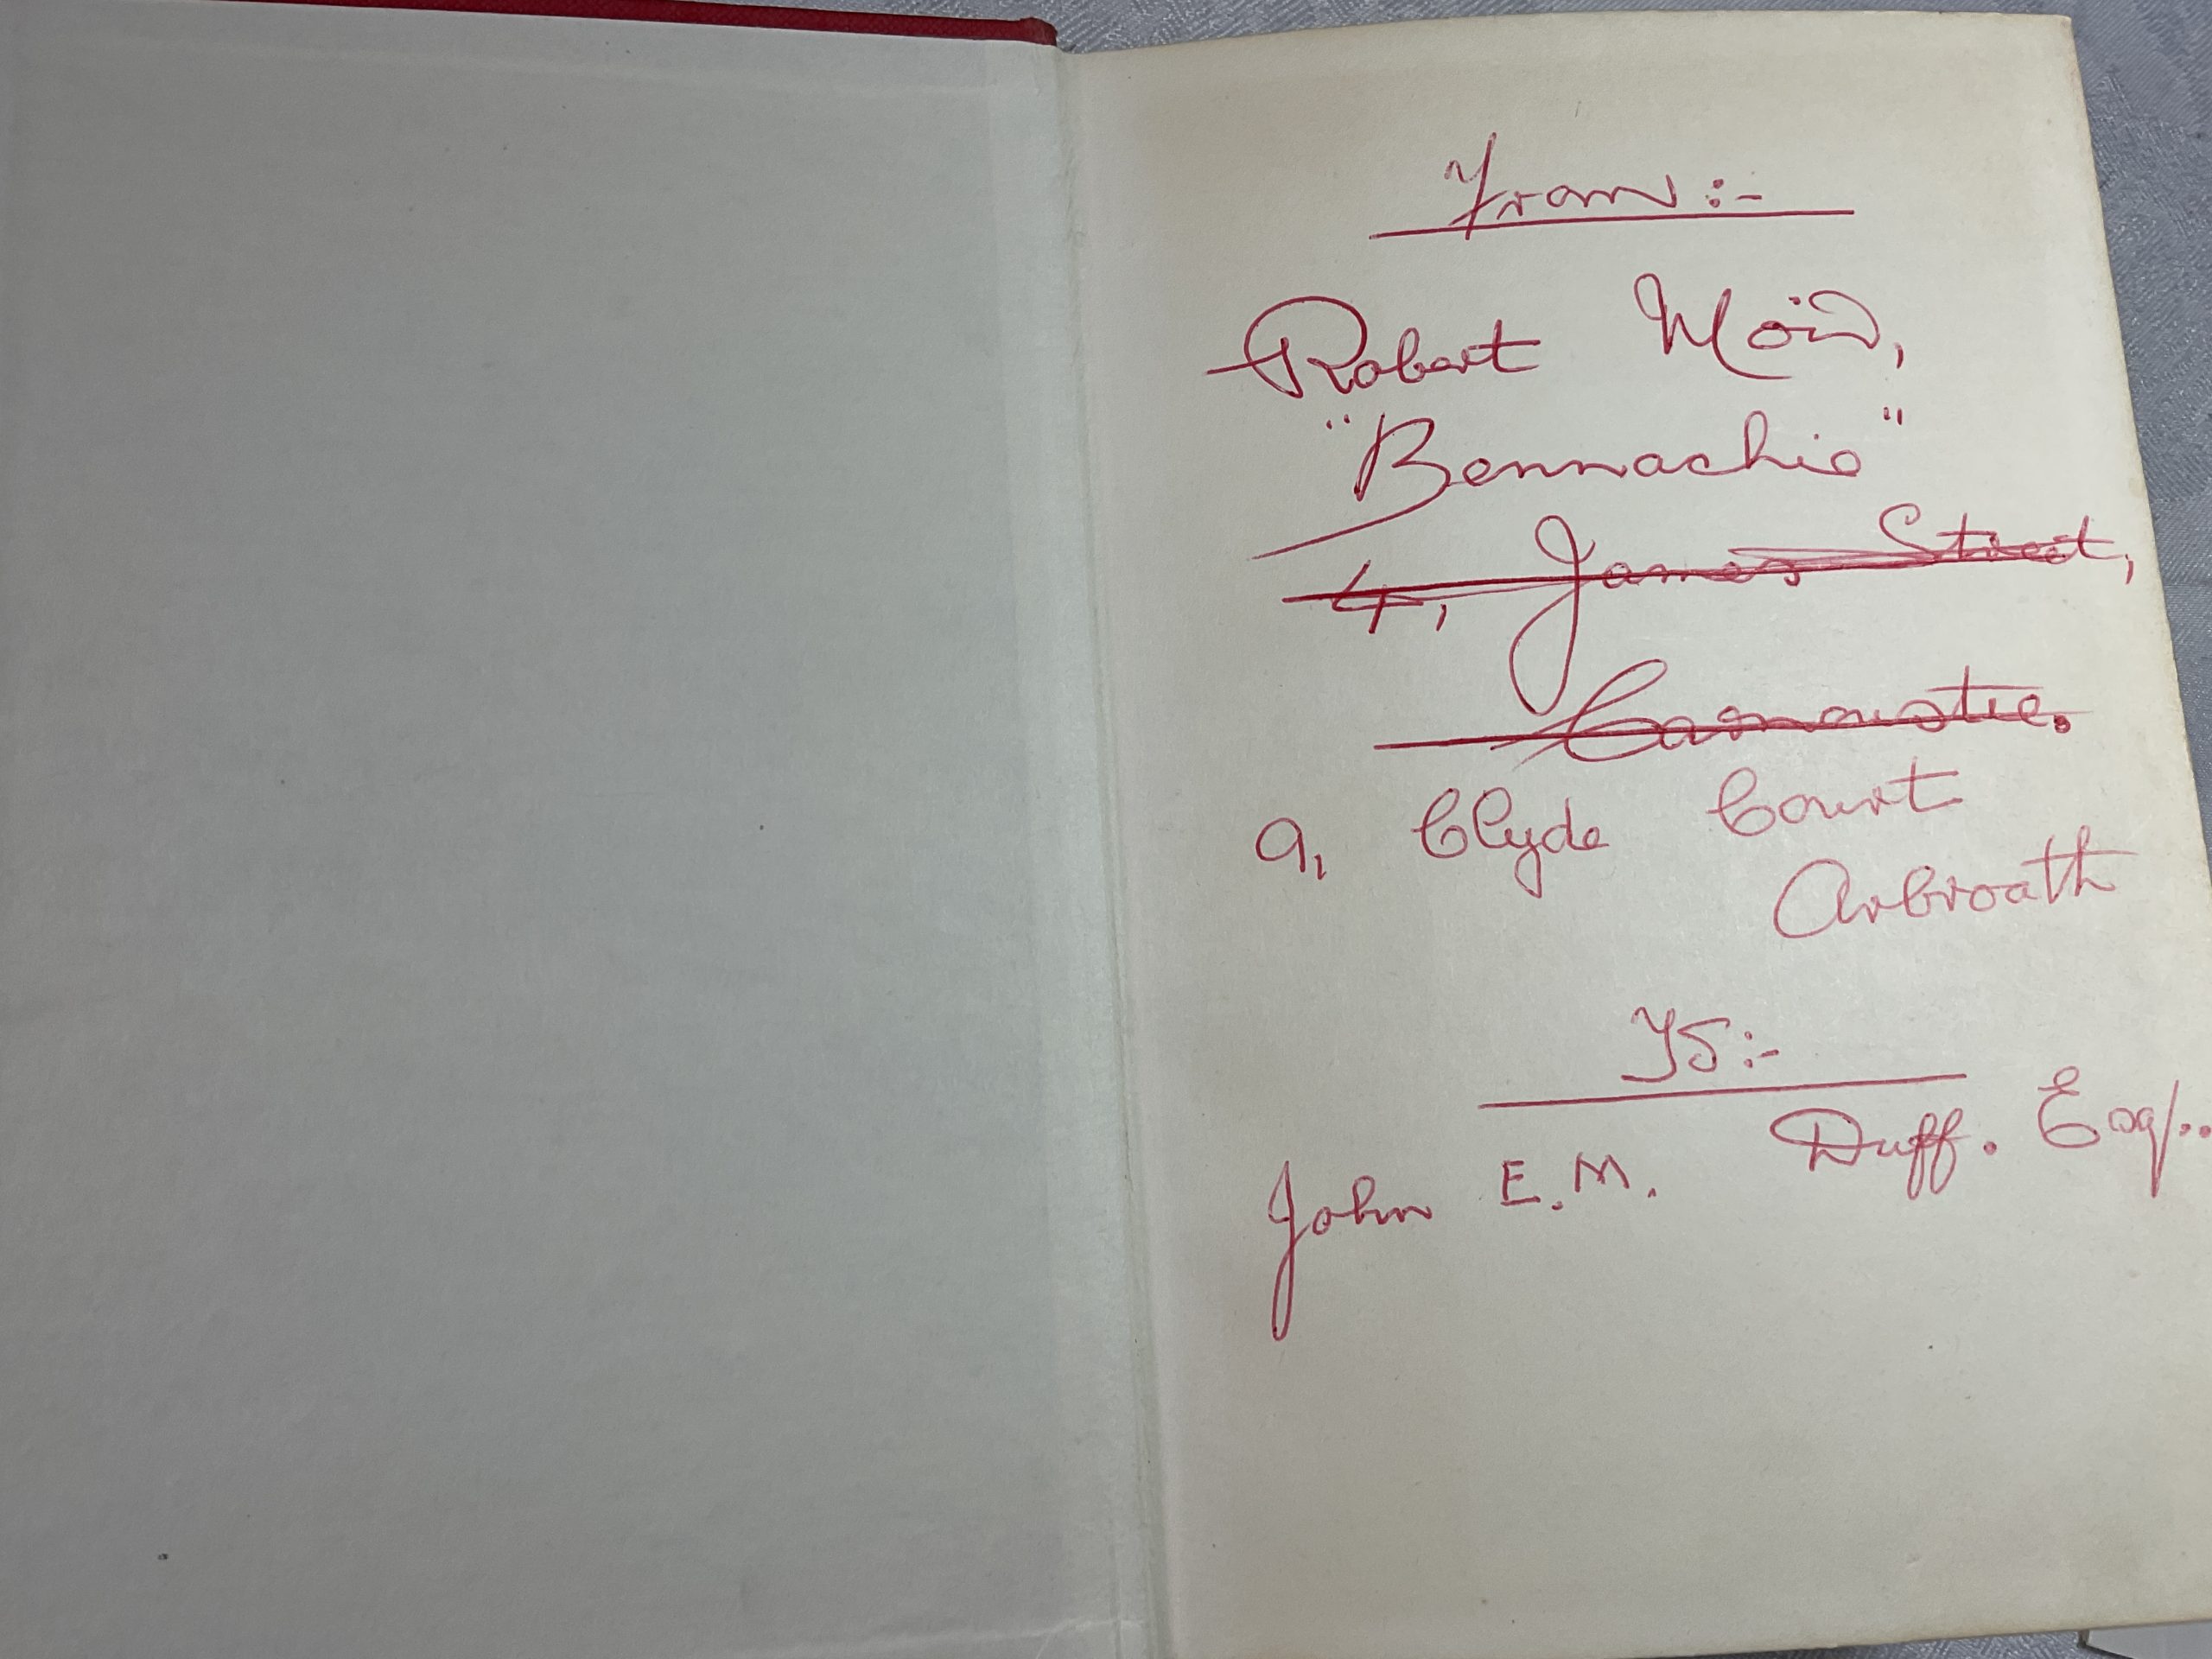 From:-
Robert Moir,
"Bennachie"
4, James Street,
Carnoustie.
9, Clyde Court
Arbroath
To:-
John E. M. Duff. Esq/..